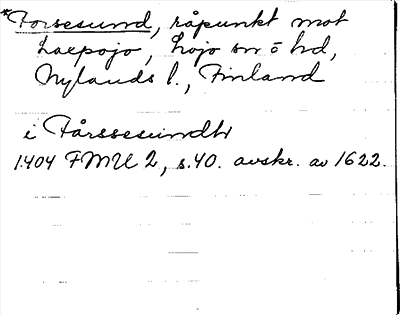 *Forsesund, råpunkt mot
Laepojo, Lojo sn o hd,
Nylands l., Finland
i Fårssesundh
1404 FMU 2, s.40. avskr. av 1622.